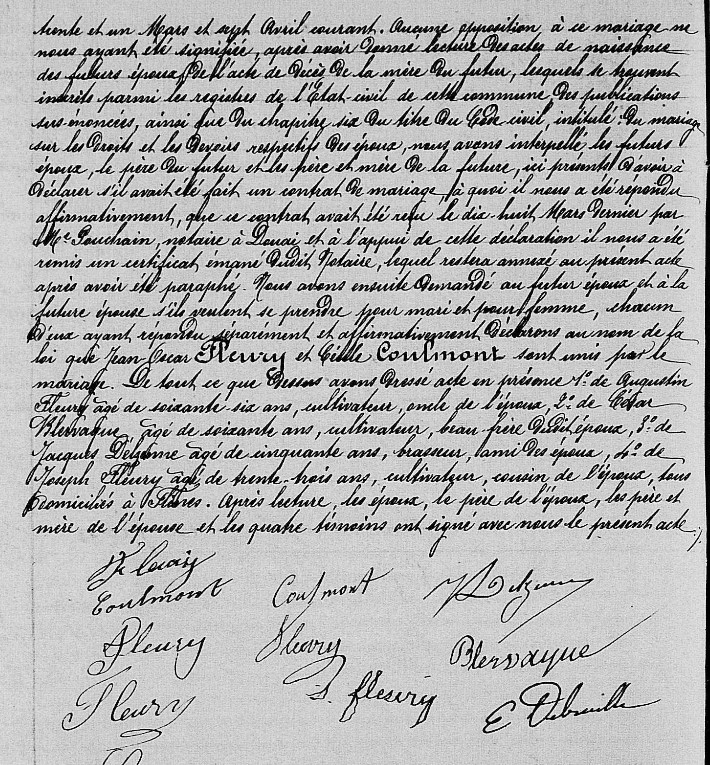 trente et un Mars et sept Avril courant. Aucune opposition à ce mariage ne
nous ayant été signifiée, après avoir donné lecture des actes de naissance
des futurs époux, de l'acte de décès de la mère du futur, lesquels se trouvent
inscrits parmi les registres de l'Etat civil de cette commune des publications
sus-énoncées, ainsi que du chapitre six du titre du Code civil, intitulé: du mariage
sur les droits et les devoirs respectifs des époux, nous avons interpellé les futurs
époux, le père du futur et les père et mère de la future, ici présents d'avoir à
déclarer s'il avait été fait un contrat de mariage, à quoi il nous a été répondu
affirmativement, que ce contrat avait été reçu le dix huit Mars dernier par
Me Pouchain, notaire à Douai et à l'appui de cette déclaration il nous a été
remis un certificat émané dudit Notaire, lequel restera annexé au présent acte
après avoir été paraphé. Nous avons ensuite demandé au futur époux et à la
future épouse s'ils veulent se prendre pour mari et pour femme, chacun
d'eux ayant répondu séparément et affirmativement déclarons au nom de la
loi que Jean Oscar Fleury et Cécile Coulmont sont unis par le
mariage. De tout ce que dessus avons dressé acte en présence 1º de Augustin
Fleury âgé de soixante six ans, cultivateur, oncle de l'époux, 2º de César
Blervaque âgé de soixante ans, cultivateur, beau frère dudit époux, 3º de
Jacques Delzenne âgé de cinquante ans, brasseur, ami des époux, 4º de
Joseph Fleury âgé de trente-trois ans, cultivateur, cousin de l'époux, tous
domiciliés à Flines. Après lecture, les époux, le père de l'époux, les père et
mère de l'épouse et les quatre témoins ont signé avec nous le présent acte./.
Fleury
Coulmont Coulmont Delzenne
Fleury Fleury Blervaque
Fleury J. fleury